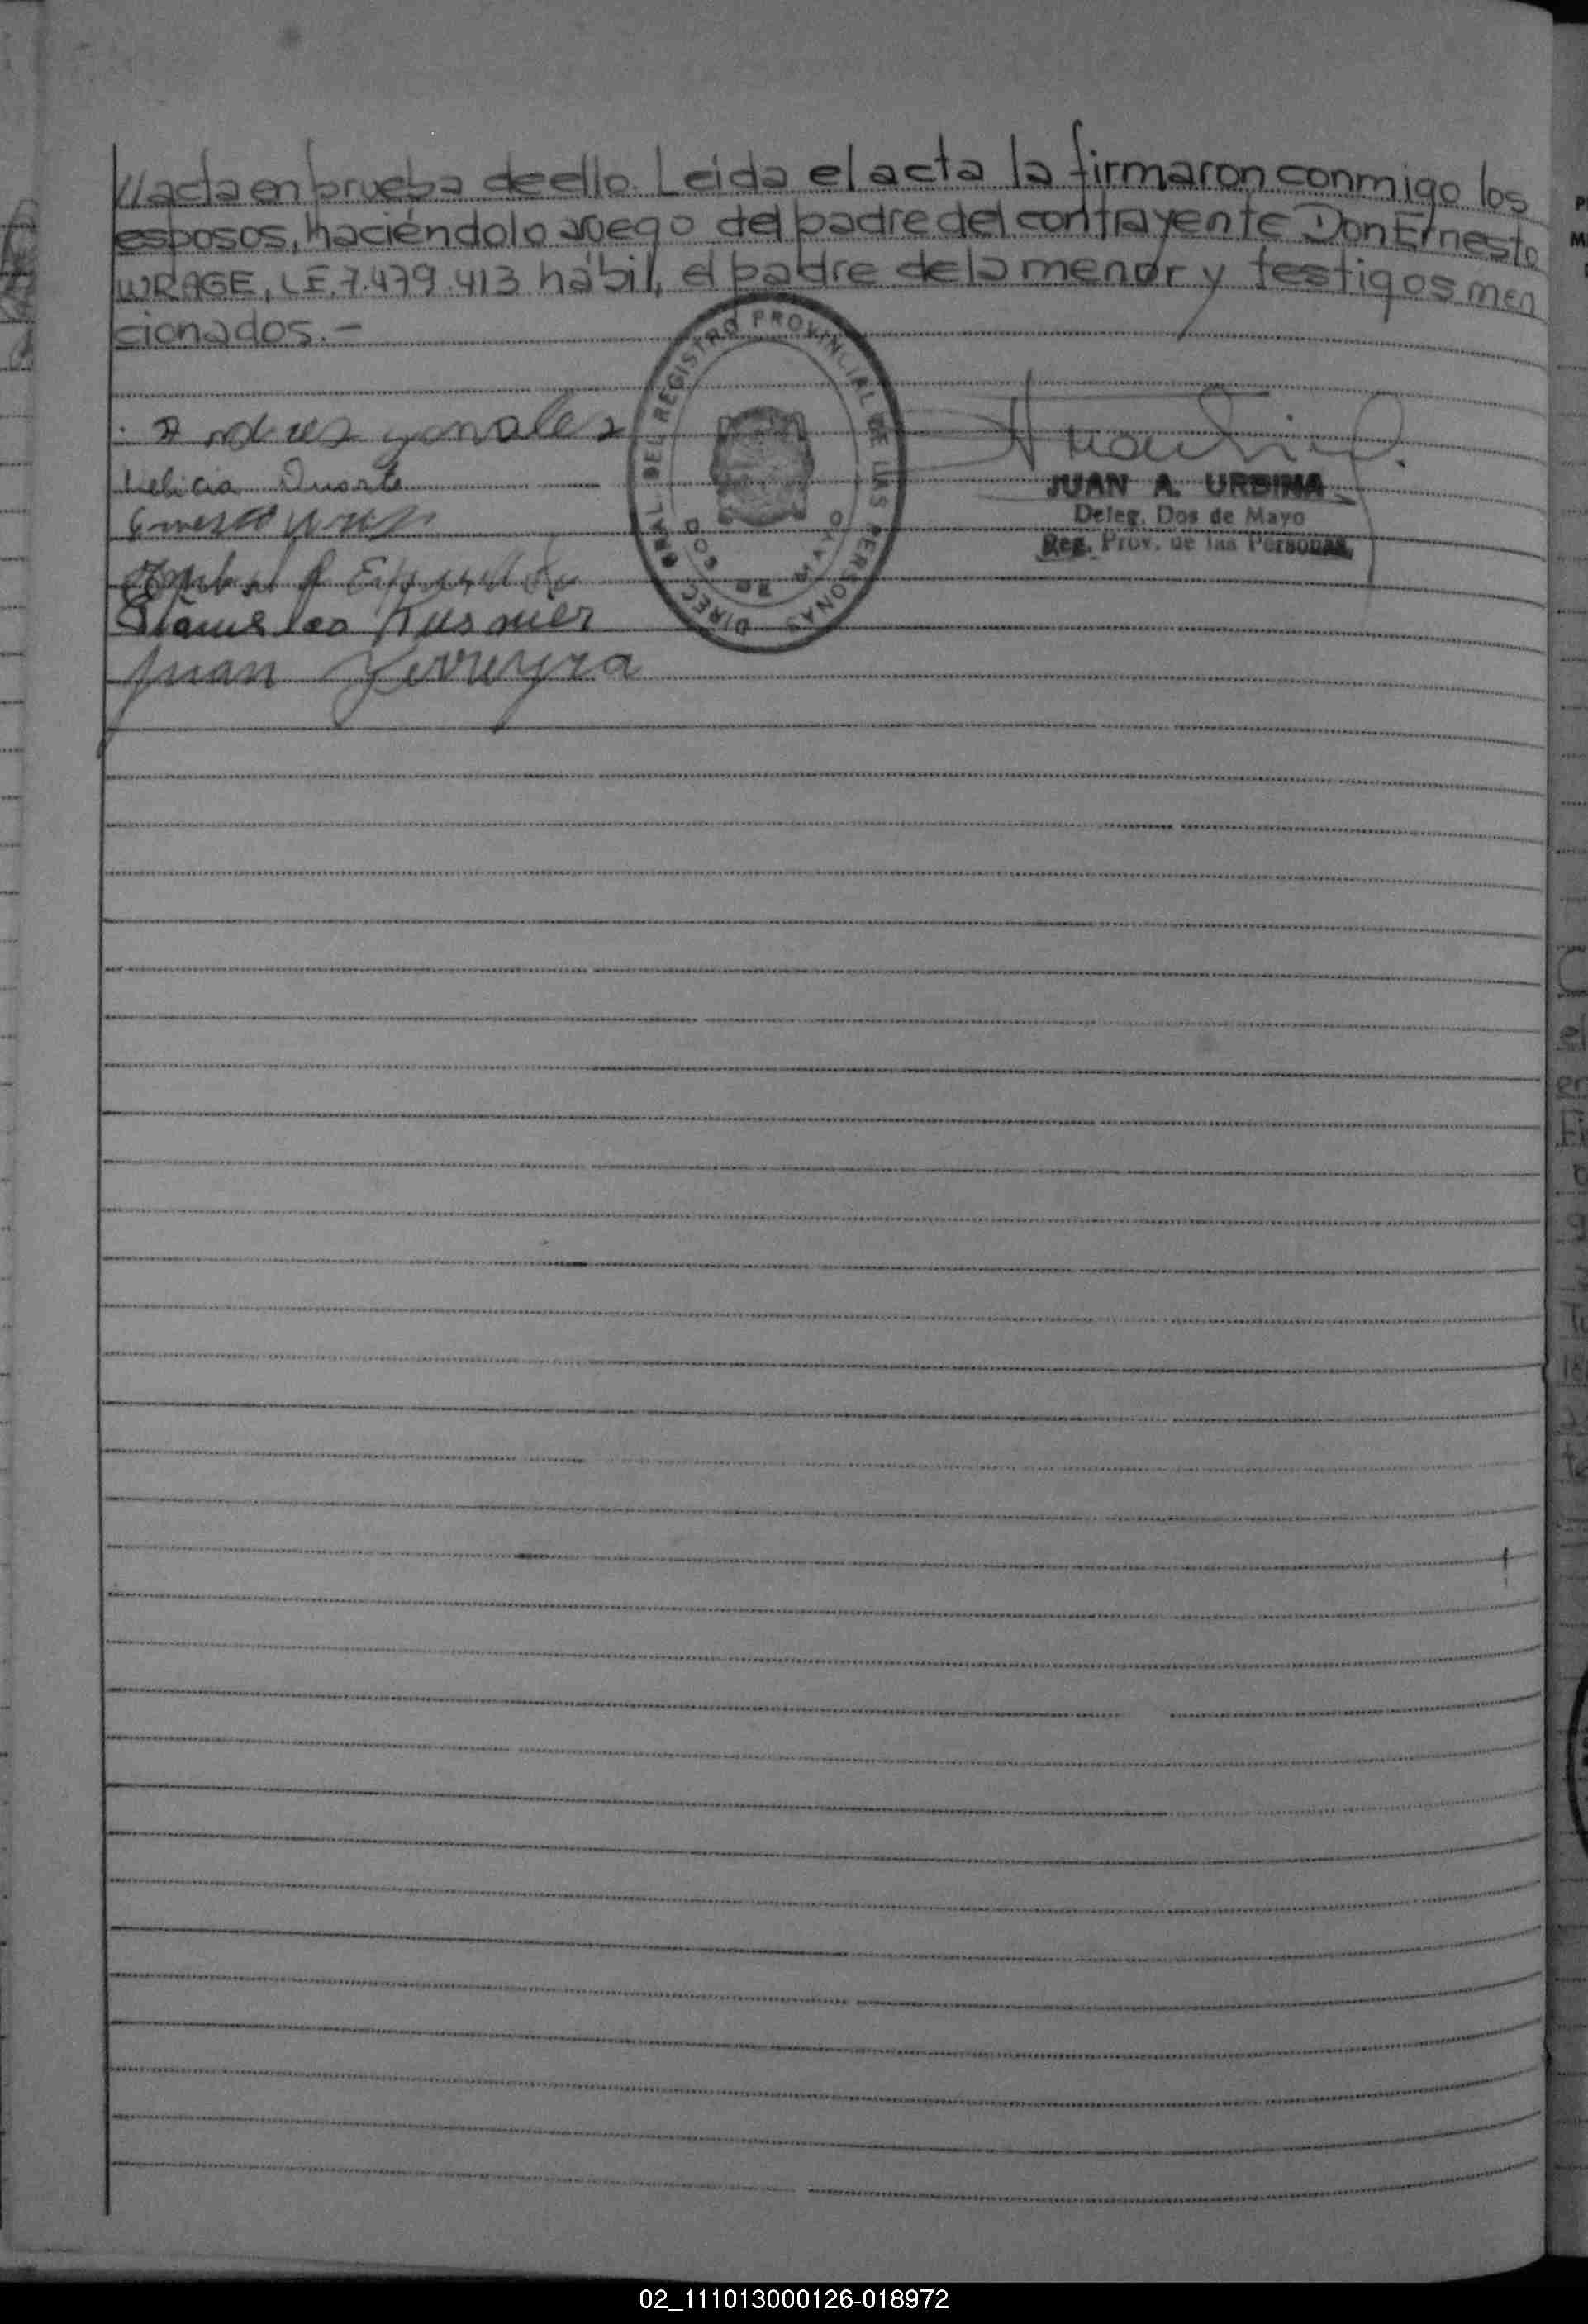 //acta en prueba de ello. Leida el acta la firmaron conmigo los
esposos, haciéndolo a ruego del padre del contrayente Don Ernesto
WRAGE, L.E. 7.479.413 hábil, el padre de la menor y testigos men
cionados.-
Andres gonzales
Duarte
Juan Ferreyra
DIREC. GRAL. DEL REGISTRO PROVINCIAL DE LAS PERSONAS
JUAN A. URBINA
Deleg. Dos de Mayo
Reg. Prov. de las Personas
02_111013000126-018972